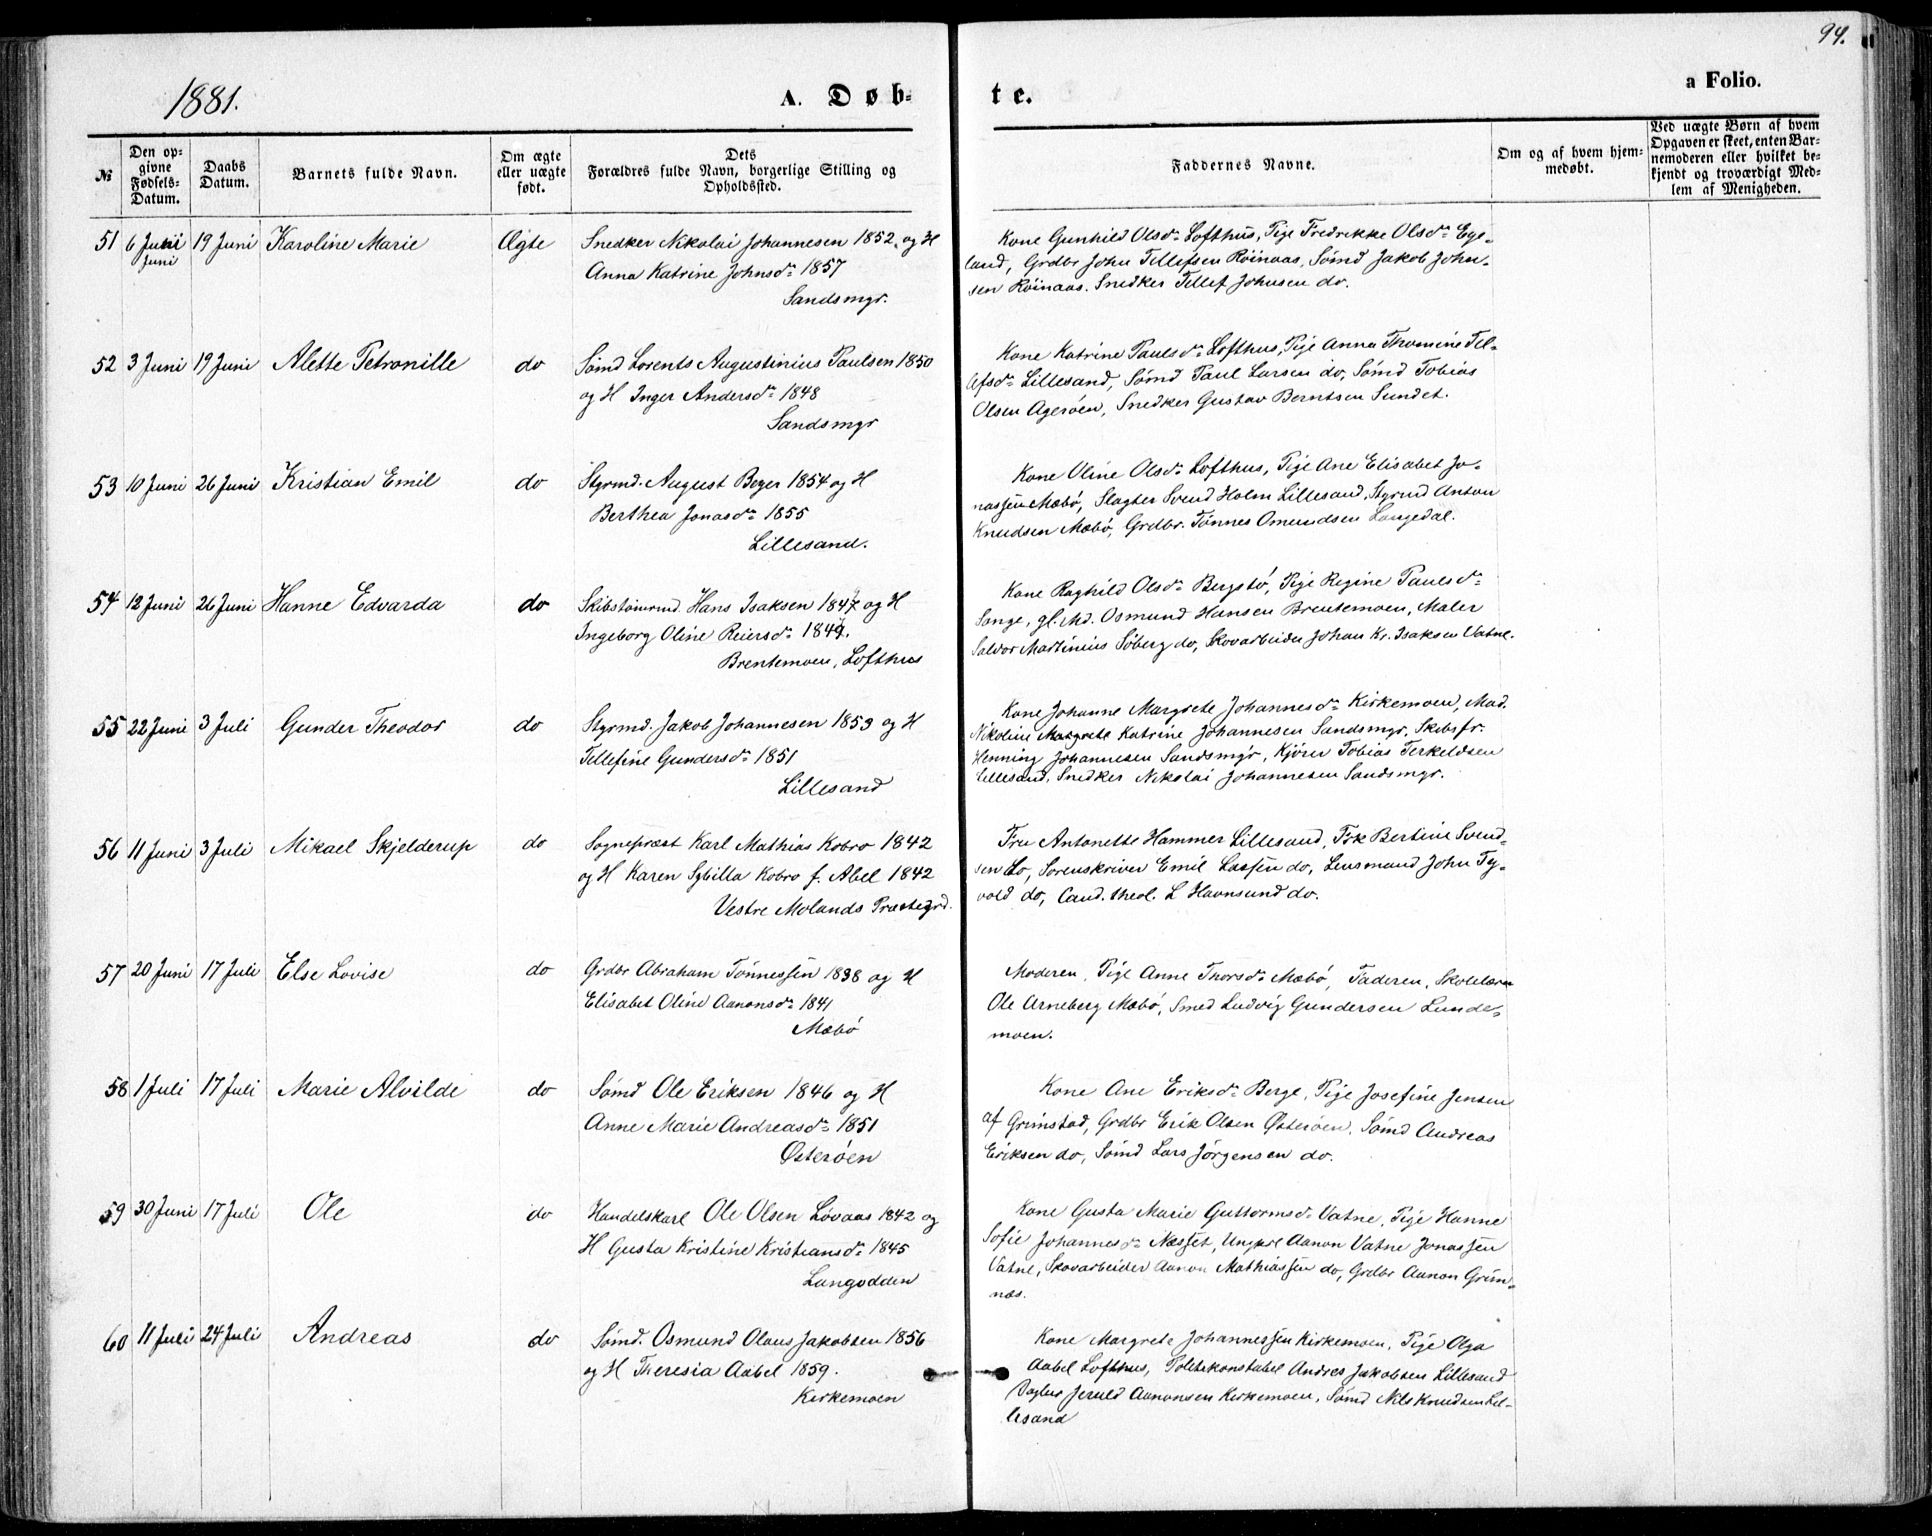 94.
1881.
A. Døb-
te.
a Folio.
№
Den op-
givne
Fødsels-
Datum.
Daabs
Datum.
Barnets fulde Navn.
Om ægte
eller uægte
født.
Dets
Forældres fulde Navn, borgerlige Stilling og
Opholdssted.
Faddernes Navne.
Om og af hvem hjem-
medøbt.
Ved uægte Børn af hvem
Opgaven er skeet, enten Bar-
nemoderen eller hvilket be-
kjendt og troværdigt Med-
lem af Menigheden.
51 6 Juni 19 Juni Karoline Marie Ægte Snedker Nikolai Johannesen 1852 og H
Juni
Anna Katrine Johnsdr 1857
Sandsmyr.
Kone Gunhild Olsdr Lofthus, Pige Fredrikke Olsdr Ege-
land, Grdbr John Tellefsen Röinaas, Sømd Jakob John-
sen Röinaas. Snedker Tellef Johnsen do.
52 3 Juni 19 Juni Alette Petronille do Sømd Lorents Augustinius Paulsen 1850
og H Inger Andersdr 1848
Sandsmyr
Kone Katrine Paulsdr Lofthus, Pige Anna Thomine Tel-
lefsdr Lillesand, Sømd Paul Larsen do, Sømd Tobias
Olsen Agerøen, Snedker Gustav Berntsen Sundet.
53 10 Juni 26 Juni Kristian Emil do Styrmd. August Beyer 1854 og H
Berthea Jonasdr 1855
Lillesand.
Kone Oline Olsdr Lofthus, Pige Ane Elisabet Jo-
nassen Mæbø, Slagter Svend Holm Lillesand, Styrmd Anton
Knudsen Mæbø, Grdbr. Tønnes Omundsen Langedal.
54 12 Juni 26 Juni Hanne Edvarda do Skibstømrmd. Hans Isaksen 1847 og H
Ingeborg Oline Reiersdr 1849.
Brentemoen, Lofthus
Kone Raghild Olsdr Bergstø, Pige Regine Paulsdr
Sange, gl. Md. Osmund Hansen Brentemoen, Maler
Salvor Martinius Søberg do, Skovarbeider Johan Kr. Isaksen Vatne.
55 22 Juni 3 Juli Gunder Theodor do Styrmd. Jakob Johannesen 1853 og H
Tellefine Gundersdr 1851
Lillesand
Kone Johanne Margrete Johannesdr Kirkemoen, Mad.
Nikoline Margrete Katrine Johannesen Sandsmyr, Skibsfr.
Henning Johannesen Sandsmyr, Kjører Tobias Terkeldsen
Lillesand, Snedker Nikolai Johannesen Sandsmyr.
56 11 Juni 3 Juli Mikael Skjelderup do Sognepræst Karl Mathias Kobro 1842
og H Karen Sybilla Kobro f. Abel 1842
Vestre Molands Præstegrd.
Fru Antonette Hammer Lillesand, Frk Bertine Svend-
sen do, Sorenskriver Emil Lassen do, Lensmand John Ty-
vold do, Cand. theol. L Havnsund do.
57 20 Juni 17 Juli Else Lovise do Grdbr Abraham Tønnessen 1838 og H
Elisabet Oline Aanonsdr 1841
Mæbø
Moderen, Pige Anne Thorsdr Mæbø, Faderen, Skolelærer
Ole Arneberg Mæbø, Smed Ludvig Gundersen Lunde-
moen.
58 1 Juli 17 Juli Marie Alvilde do Sømd Ole Eriksen 1846 og H
Anne Marie Andreasdr 1851
Østerøen
Kone Ane Eriksdr Berge, Pige Josefine Jensen
af Grimstad, Grdbr Erik Olsen Østerøen, Sømd Andreas
Eriksen do, Sømd Lars Jørgensen do.
59 30 Juni 17 Juli Ole do Handelskarl Ole Olsen Løvaas 1842 og
H Gusta Kristine Kristiansdr 1845
Langodden
Kone Gusta Marie Guttormsdr Vatne, Pige Hanne
Sofie Johannesdr Næsset, Ungkrl Aanon Vatne Jonassen
Vatne, Skovarbeider Aanon Mathiassen do, Grdbr Aanon Grim-
næs.
60 11 Juli 24 Juli Andreas do Sømd. Osmund Olaus Jakobsen 1856
og H Theresia Aabel 1859.
Kirkemoen
Kone Margrete Johannessen Kirkemoen, Pige Olga
Aabel Lofthus, Politikonstabel Andres Jakobsen Lillesand
Jeruld Aanonsen Kirkemoen, Sømd Nils Knudsen Lil-
lesand